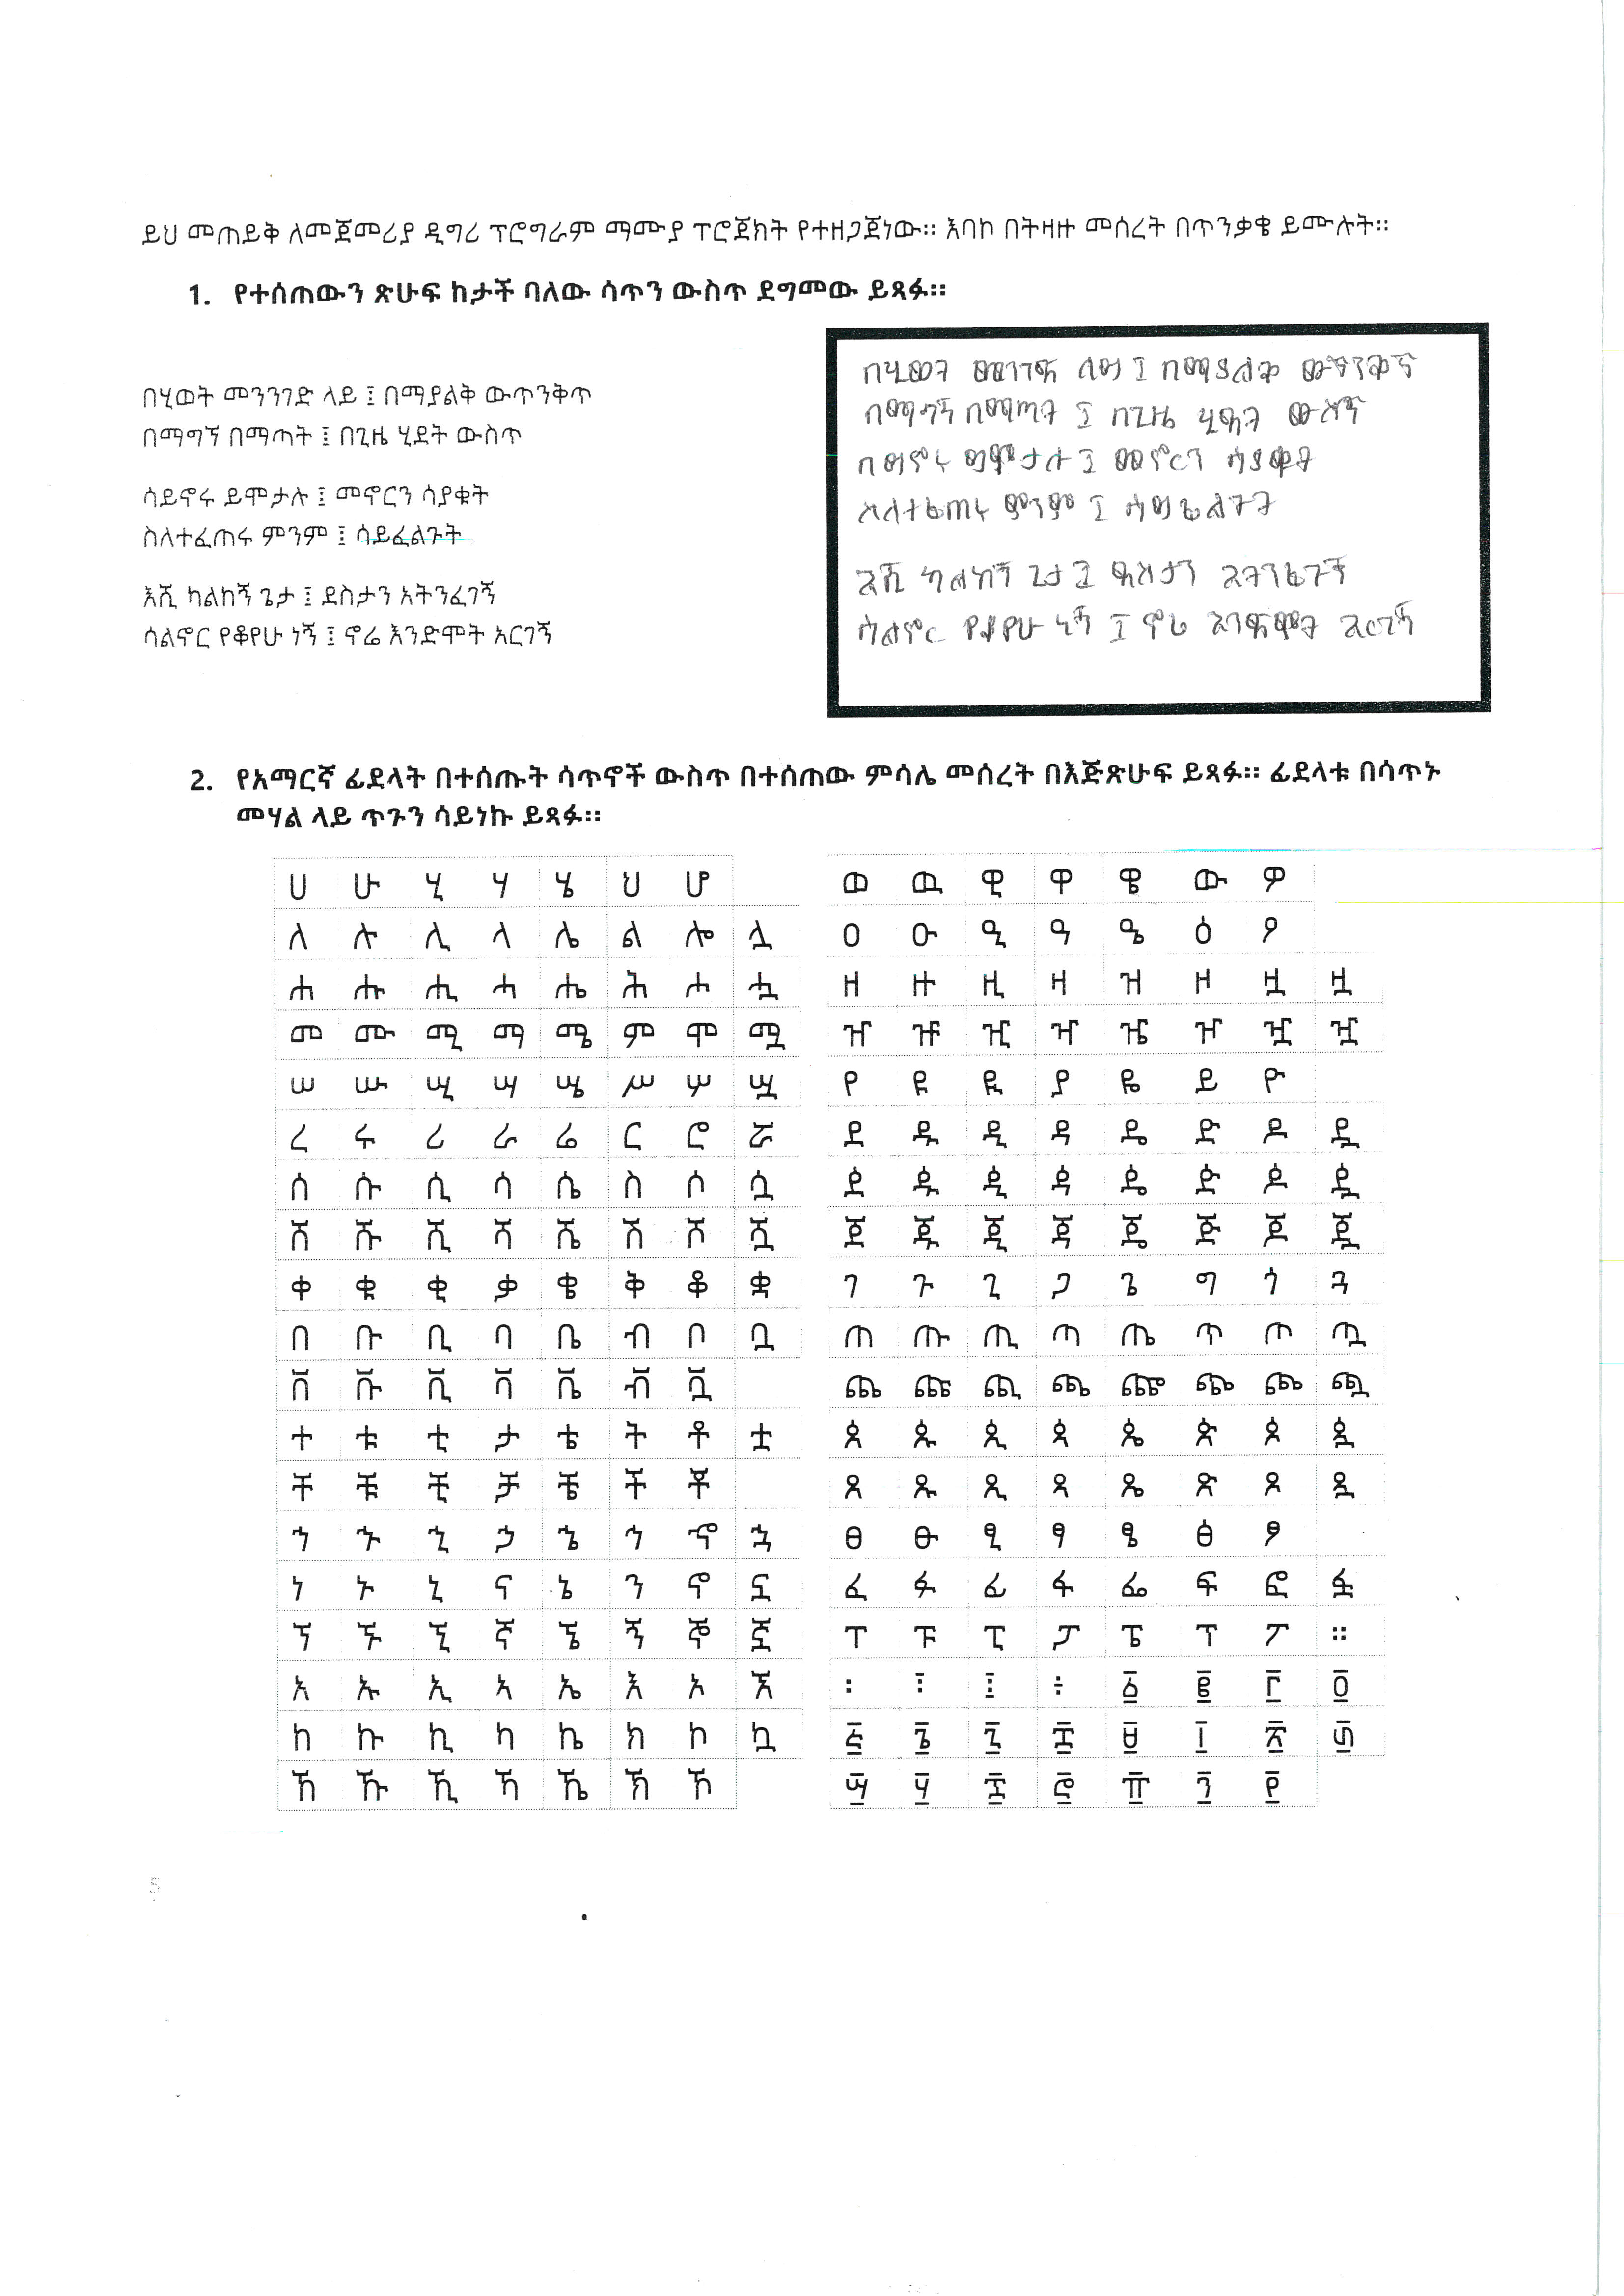 ይህ መጠይቅ ለመጀመሪያ ዲግሪ ፕሮግራም ማሙያ ፕሮጀክት የተዘጋጀነው። እባኮ በትዛዙ መሰረት በጥንቃቄ ይሙሉት።
1. የተሰጠውን ጽሁፍ ከታች ባለው ሳጥን ውስጥ ደግመው ይጻፉ።
በሂወት መንንገድ ላይ ፤ በማያልቅ ውጥንቅጥ
በማግኘ በማጣት ፤ በጊዜ ሂደት ውስጥ
ሳይኖሩ ይሞታሉ ፤ መኖርን ሳያቁት
ስለተፈጠሩ ምንም ፤ ሳይፈልጉት
እሺ ካልከኝ ጌታ ፤ ደስታን አትንፈገኝ
ሳልኖር የቆየሁ ነኝ ፤ ኖሬ እንድሞት አርገኝ
በሂወት
በማግኘ በማጣት በጊዜ
ስለተፈጠሩ ምንም
እሺ ካልከኝ ጌታ
ሳልኖር ነኝ ኖሬ እንድሞት አርገኝ
2. የአማርኛ ፊደላት በተሰጡት ሳጥኖች ውስጥ በተሰጠው ምሳሌ መሰረት በእጅጽሁፍ ይጻፉ። ፊደላቱ በሳጥኑ
መሃል ላይ ጥጉን ሳይነኩ ይጻፉ።
ሀ ሁ ሂ ሃ ሄ ህ ሆ
ለ ሉ ሊ ላ ሌ ል ሎ ሏ
ሐ ሑ ሒ ሓ ሔ ሕ ሖ ሗ
መ ሙ ሚ ማ ሜ ም ሞ ሟ
ሠ ሡ ሢ ሣ ሤ ሥ ሦ ሧ
ረ ሩ ሪ ራ ሬ ር ሮ ሯ
ሰ ሱ ሲ ሳ ሴ ስ ሶ ሷ
ሸ ሹ ሺ ሻ ሼ ሽ ሾ ሿ
ቀ ቁ ቂ ቃ ቄ ቅ ቆ ቋ
በ ቡ ቢ ባ ቤ ብ ቦ ቧ
ቨ ቩ ቪ ቫ ቬ ቭ ቯ
ተ ቱ ቲ ታ ቴ ት ቶ ቷ
ቸ ቹ ቺ ቻ ቼ ች ቾ
ኀ ኁ ኂ ኃ ኄ ኅ ኆ ኋ
ነ ኑ ኒ ና ኔ ን ኖ ኗ
ኘ ኙ ኚ ኛ ኜ ኝ ኞ ኟ
አ ኡ ኢ ኣ ኤ እ ኦ ኧ
ከ ኩ ኪ ካ ኬ ክ ኮ ኳ
ኸ ኹ ኺ ኻ ኼ ኽ ኾ
ወ ዉ ዊ ዋ ዌ ው ዎ
ዐ ዑ ዒ ዓ ዔ ዕ ዖ
ዘ ዙ ዚ ዛ ዝ ዞ ዟ ዟ
ዠ ዡ ዢ ዣ ዤ ዦ ዧ ዧ
የ ዩ ዪ ያ ዬ ይ ዮ
ደ ዱ ዲ ዳ ዴ ድ ዶ ዷ
ዸ ዹ ዺ ዻ ዼ ዽ ዾ ዿ
ጀ ጁ ጂ ጃ ጄ ጅ ጆ ጇ
ገ ጉ ጊ ጋ ጌ ግ ጎ ጓ
ጠ ጡ ጢ ጣ ጤ ጥ ጦ ጧ
ጰ ጱ ጲ ጳ ጴ ጵ ጶ ጷ
ጸ ጹ ጺ ጻ ጼ ጽ ጾ ጿ
ፀ ፁ ፂ ፃ ፄ ፅ ፆ
ፈ ፉ ፊ ፋ ፌ ፍ ፎ ፏ
ፐ ፑ ፒ ፓ ፔ ፕ ፖ ።
፡ ፧ ፩ ፪ ፫ ፬
፭ ፮ ፯ ፰ ፱ ፲ ፳ ፴
፵ ፶ ፷ ፸ ፹ ፺ ፻